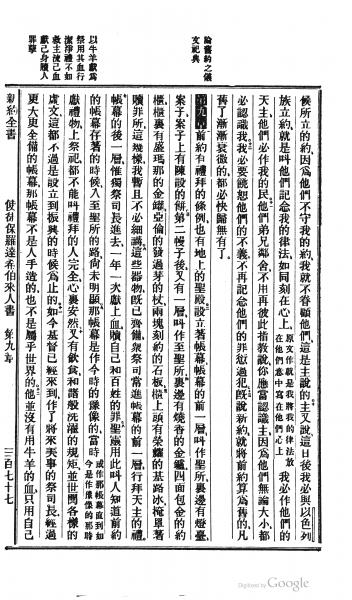 論舊約之儀
文祀典
以牛羊獻為
祭用其血行
潔淨禮不如
救主流己血
獻己身贖人
罪孽
候所立的約因為他們不守我的約我就不眷顧他們這是主說的主又說這日後我必與以色列
族立約就是叫他們記念我的律法如同刻在心上原文作就是我將我的律法放在他們意中寫在他們心上我必作他們的
天主他們必作我的民他們弟兄鄰舍不用再彼此指教說你應當認識主因為他們無論大小都
必認識我我必要饒恕他們的不義不再記念他們的罪愆過犯既說新約就將前約算為舊的凡
舊了漸漸衰微的都必快歸無有了
第九章前約有禮拜的條例也有地上的聖殿設立著帳幕帳幕的前一層叫作聖所裏邊有燈臺
案子案子上有陳設的餅第二幔子後又有一層叫作至聖所裏邊有燒香的金鑪四面包金的約
櫃櫃裏有盛瑪那的金罐亞倫的發過芽的杖兩塊刻約的石板櫃上頭有榮耀的基路冰掩罩著
贖罪所這幾樣我暫且不必細講這些器物既已齊備衆祭司常進帳幕的前一層行拜天主的禮
帳幕的後一層惟獨祭司長進去一年一次獻上血贖自己和百姓的罪聖靈用此叫人知道前約
的帳幕存著的時候人至聖所的路尚未明顯那帳幕是作今時的豫像的當時或作那帳幕直到如今是作豫像的那時
獻禮物上祭祀都不能叫禮拜的人完全心裏安然又有飲食和諸般洗濯的規矩並世間各樣的
虛文這都不過是設立到振興的時候為止的如今基督已經來到作了將來天事的祭司長經過
更大更全備的帳幕那帳幕不是人手造的也不是屬乎世界的他並沒有用牛羊的血只用自己
新約全書
使徒保羅達希伯來人書
第九章
三百七十七
Digitized by Google